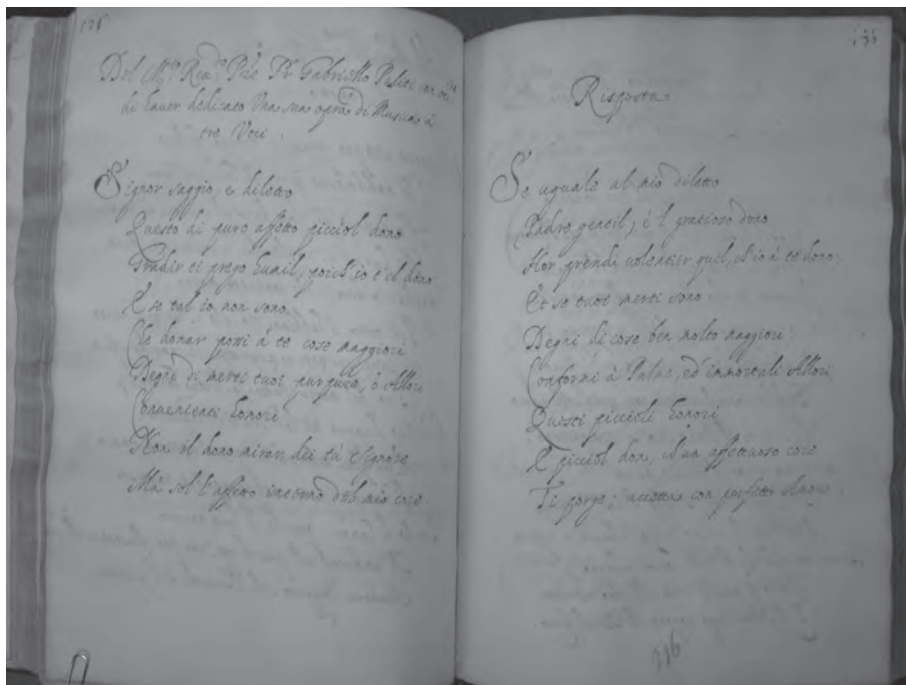 Del M.to Reu.do P're Fr Gabriello Puliti con
di hauer dedicato Una sua opera di Musica à
tre Voci
Signor saggio, e diletto
Questo di puro affetto picciol dono
Gradir ti prego humil, poich'io t'el dono
E se tal io non sono,
Che donar possi à te cose maggiori
Degni di merti tuoi purpure, ò Allori
Conuenienti honori
Non il dono mirar dei tù Signore
Mà sol l'affetto interno del mio core
Risposta
Se uguale al mio diletto
Padre gentil, è 'l gratioso dono
Hor prendi uolentier quel, ch'io à te dono
Et se tuoi merti sono
Degni di cose ben molto maggiori
Conformi à Palme, ed immortali Allori
Questi piccioli honori
E picciol don, ch'un affettuoso core
Ti porge; accetta con perfetto Amore.
116